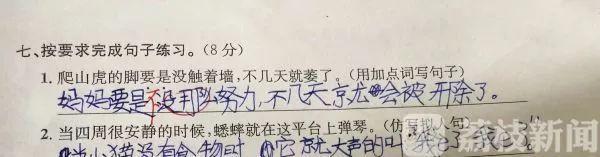 七、按要求完成句子练习。(8分)
1. 爬山虎的脚要是没触着墙,不几天就萎了。(用加点词写句子)
妈妈要是没那么努力,不几天就会被开除了。
2. 当四周很安静的时候,蟋蟀就在这平台上弹琴。(仿写 句)
当小猫没有食物时,它就大声的叫
荔枝新闻